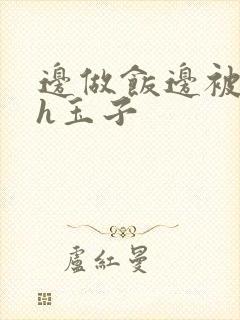 邊做飯邊被
h玉子
盧紅曼